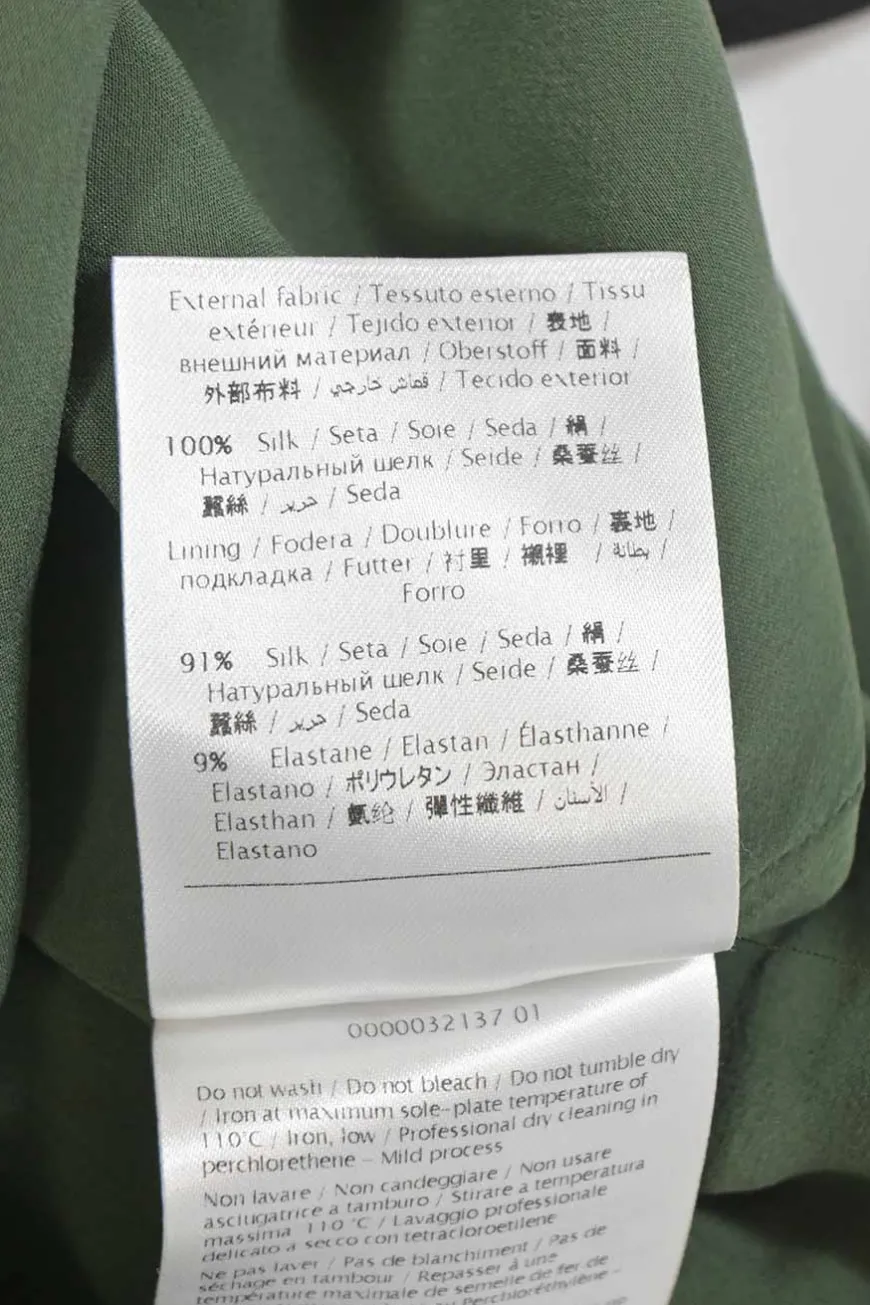 External fabric / Tessuto esterno / Tissu
extérieur / Tejido exterior / 表地 /
внешний материал / Oberstoff / 面料 /
外部布料 / قماش خارجي / Tecido exterior
100% Silk / Seta / Soie / Seda / 絹 /
Натуральный шелк / Seide / 桑蚕丝 /
蠶絲 / حرير / Seda
Lining / Fodera / Doublure / Forro / 裏地 /
подкладка / Futter / 衬里 / 襯裡 / بطانة /
Forro
91% Silk / Seta / Soie / Seda / 絹 /
Натуральный шелк / Seide / 桑蚕丝 /
蠶絲 / حرير / Seda
9% Elastane / Elastan / Élasthanne /
Elastano / ポリウレタン / Эластан /
Elasthan / 氨纶 / 彈性纖維 / الأستان /
Elastano
0000032137 01
Do not wash / Do not bleach / Do not tumble dry
/ Iron at maximum sole-plate temperature of
110°C / Iron, low / Professional dry cleaning in
perchlorethene - Mild process
Non lavare / Non candeggiare / Non usare
asciugatrice a tamburo / Stirare a temperatura
massima 110 °C / Lavaggio professionale
delicato a secco con tetracloroetilene
Ne pas laver / Pas de blanchiment / Pas de
séchage en tambour / Repasser à une
température maximale de semelle de fer de
Perchloréthylène -